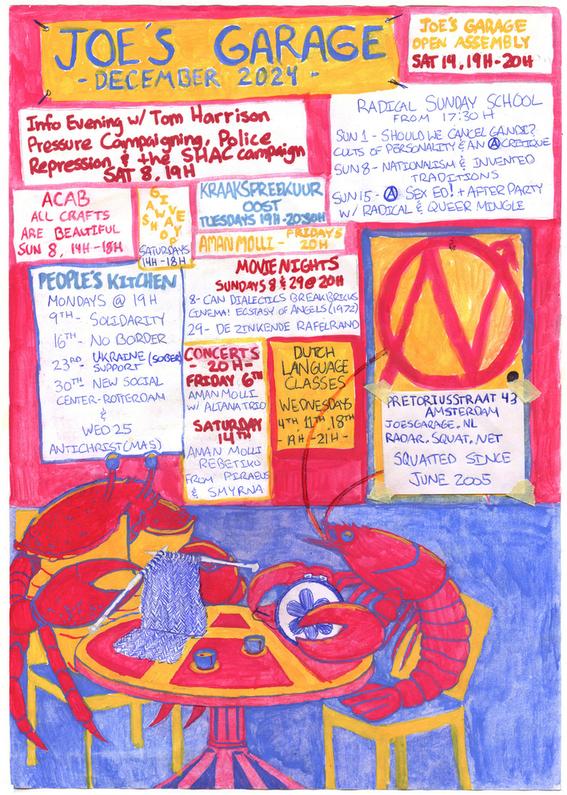 JOE'S GARAGE
- DECEMBER 2024 -
JOE'S GARAGE
OPEN ASSEMBLY
SAT 14, 19H-20H
Info Evening w/ Tom Harrison
Pressure Campaigning, Police
Repression & the SHAC campaign
SAT 8, 19H
RADICAL SUNDAY SCHOOL
FROM 17:30H
SUN 1 - SHOULD WE CANCEL GANDI?
CULTS OF PERSONALITY & AN Ⓐ CRITIQUE
SUN 8 - NATIONALISM & INVENTED
TRADITIONS
SUN 15 - Ⓐ SEX ED! + AFTER PARTY
W/ RADICAL & QUEER MINGLE
ACAB
ALL CRAFTS
ARE BEAUTIFUL
SUN 8, 14H-18H
GIVE
AWAY
SHOP
SATURDAYS
14H-18H
KRAAKSPREEKUUR
OOST
TUESDAYS 19H-20:30H
AMAN MOLLI - FRIDAYS
20H
PEOPLE'S KITCHEN
MONDAYS @ 19H
9TH - SOLIDARITY
16TH - NO BORDER
23RD - UKRAINE (SOBER)
SUPPORT
30TH - NEW SOCIAL
CENTER-ROTTERDAM
&
WED 25
ANTICHRIST(MAS)
MOVIE NIGHTS
SUNDAYS 8 & 29 @ 20H
8 - CAN DIALECTICS BREAK BRICKS
CINEMA! ECSTASY OF ANGELS (1972)
29 - DE ZINKENDE RAFELRAND
CONCERTS
- 20H -
FRIDAY 6TH
AMAN MOLLI
W/ ALTANA TRIO
SATURDAY
14TH
AMAN MOLLI
REBETIKO
FROM PIRAEUS
& SMYRNA
DUTCH
LANGUAGE
CLASSES
WEDNESDAYS
4TH, 11TH, 18TH
- 19H - 21H -
PRETORIUSSTRAAT 43
AMSTERDAM
JOESGARAGE.NL
RADAR.SQUAT.NET
SQUATTED SINCE
JUNE 2005